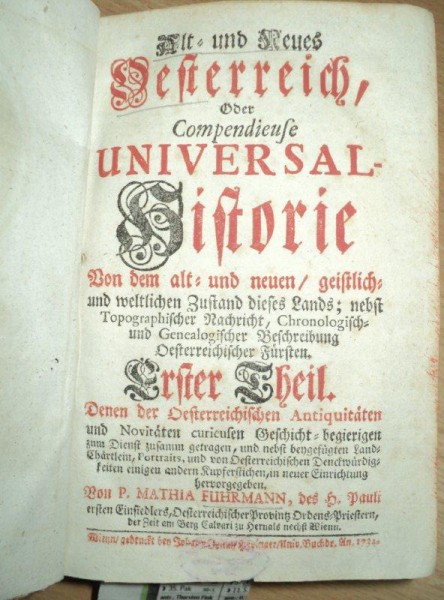 Alt- und Neues
Oesterreich,
Oder
Compendieuse
UNIVERSAL-
Historie
Von dem alt- und neuen/ geistlich-
und weltlichen Zustand dieses Lands; nebst
Topographischer Nachricht, Chronologisch-
und Genealogischer Beschreibung
Oesterreichischer Fürsten.
Erster Theil.
Denen der Oesterreichischen Antiquitäten
und Novitäten curieusen Geschicht-begierigen
zum Dienst zusamm getragen, und nebst beygefügten Land-
Chärtlein, Portraits, und von Oesterreichischen Denckwürdig-
keiten einigen andern Kupferstichen, in neuer Einrichtung
hervorgegeben.
Von P. MATHIA FUHRMANN, des H. Pauli
ersten Einsiedlers, Oesterreichischer Provintz Ordens/Priestern,
der Zeit am Berg Calvari zu Hernals nechst Wienn.
Wienn/ gedruckt bey Univ. Buchdr. An. 1734.